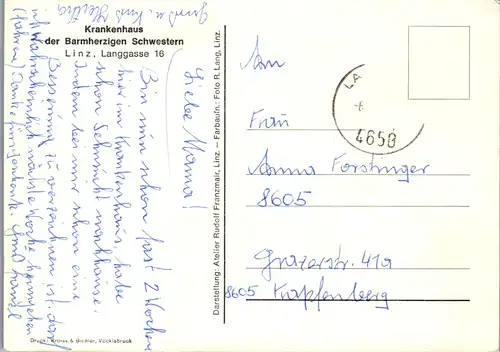 Krankenhaus
der Barmherzigen Schwestern
Linz, Langgasse 16
Liebe Mama!
Bin nun schon fast 2 Wochen
hier im Krankenhaus, habe
schon Sehnsucht nachhause.
Indem bei mir schon eine
Besserung zu verzeichnen ist, darf
ich wahrscheinlich nächste Woche heim
(fahren). Danke für
Gruß u. Kuss
Darstellung: Atelier Rudolf Franzmair, Linz. – Farbaufn.: Foto R. Lang, Linz.
Druck: Kroiss & Bichler, Vöcklabruck
LA
4650
An
Frau
Anna Forstinger
8605
Grazerstr. 41a
8605 Kapfenberg